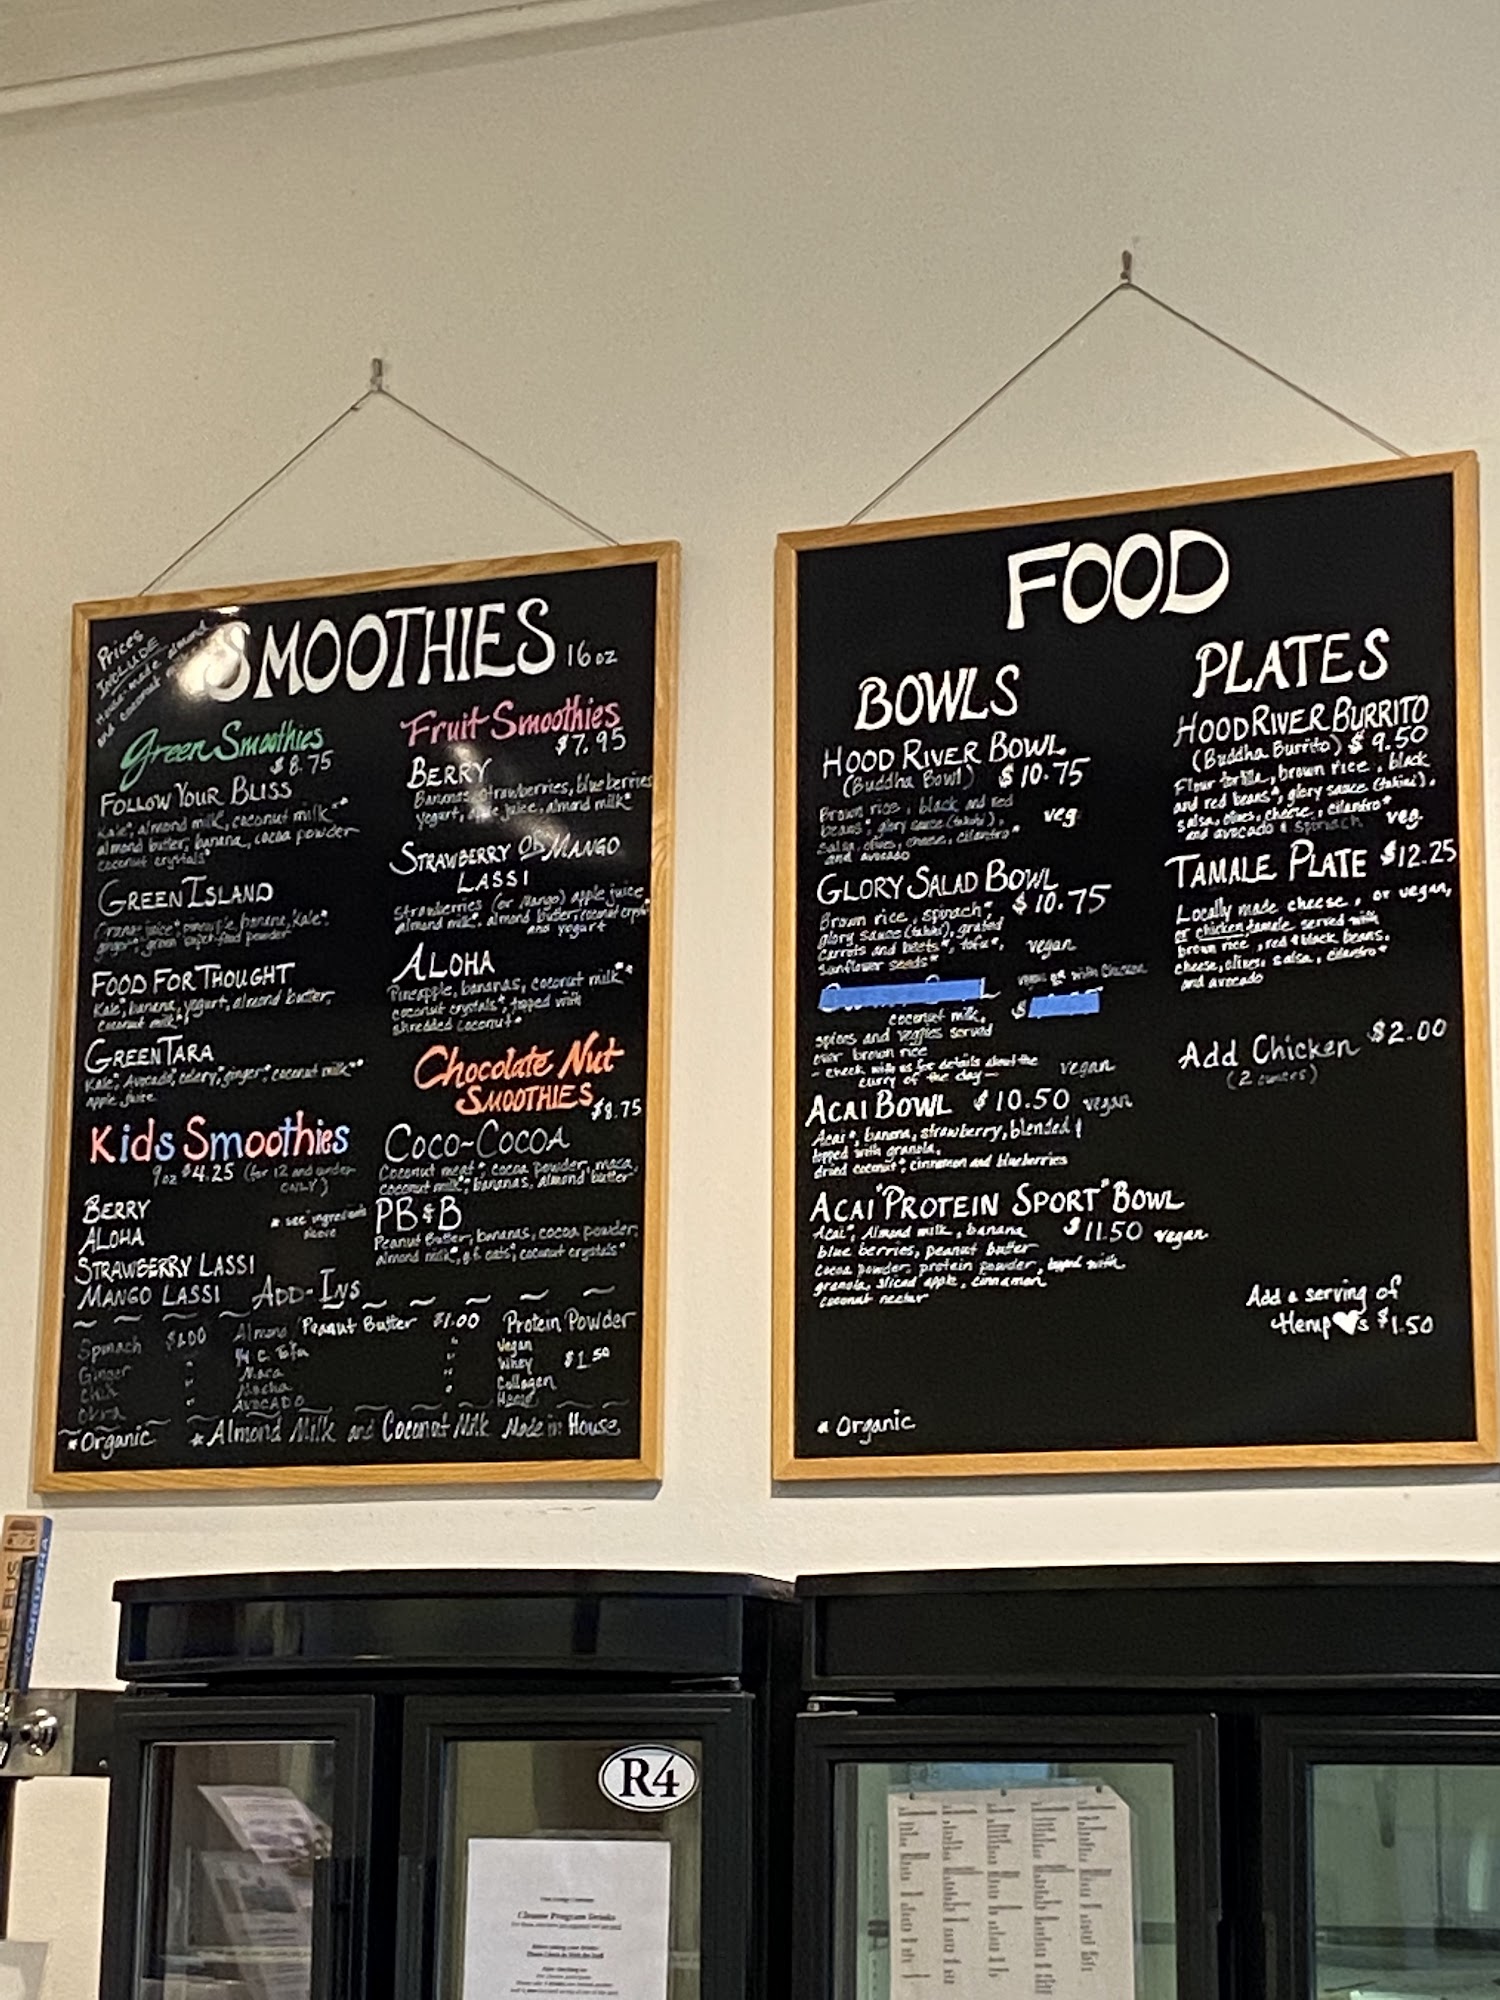 Prices
INCLUDE
House-made almond
and coconut milk
SMOOTHIES 16 oz
Green Smoothies
$8.75
FOLLOW YOUR BLISS
Kale*, almond milk, coconut milk**
almond butter, banana, cocoa powder
coconut crystals*
GREEN ISLAND
juice, pineapple, banana, kale*
ginger*, green super-food powder
FOOD FOR THOUGHT
Kale*, banana, yogurt, almond butter,
coconut milk*
GREEN TARA
Kale*, Avocado*, celery*, ginger*, coconut milk**
apple juice
Kids Smoothies
9oz $4.25 (for 12 and under
ONLY)
BERRY
ALOHA
STRAWBERRY LASSI
MANGO LASSI
* see ingredients
above
Fruit Smoothies
$7.95
BERRY
Bananas, strawberries, blueberries
yogurt, apple juice, almond milk*
STRAWBERRY OR MANGO
LASSI
Strawberries (or Mango) apple juice,
almond milk*, almond butter, coconut cryst*
and yogurt
ALOHA
Pineapple, bananas, coconut milk**
coconut crystals*, topped with
shredded coconut*
Chocolate Nut
SMOOTHIES
$8.75
COCO~COCOA
Coconut meat*, cocoa powder, maca,
coconut milk*, bananas, almond butter
PB&B
Peanut Butter, bananas, cocoa powder,
almond milk*, g.f. oats*, coconut crystals*
ADD-INS
Spinach $1.00
Ginger "
Chia "
Okra "
Almond/Peanut Butter $1.00
1/4 C. Tofu "
Maca "
Mocha "
AVOCADO
Protein Powder
Vegan
Whey $1.50
Collagen
Hemp
*Organic *Almond Milk and Coconut Milk Made in House
FOOD
BOWLS
HOOD RIVER BOWL
(Buddha Bowl) $10.75
Brown rice, black and red
beans*, glory sauce (tahini), veg
Salsa, olives, cheese, cilantro*
and avocado
GLORY SALAD BOWL
$10.75
Brown rice, spinach*,
glory sauce (tahini), grated
Carrots and beets*, tofu*, vegan
Sunflower seeds*
vegan or with Chicken
$
coconut milk,
spices and veggies served
over brown rice
- check with us for details about the
curry of the day - vegan
ACAI BOWL $10.50 vegan
Acai*, banana, strawberry, blended &
topped with granola,
dried coconut*, cinnamon and blueberries
ACAI "PROTEIN SPORT" BOWL
$11.50 vegan
Acai*, Almond milk, banana
blue berries, peanut butter
Cocoa powder, protein powder, topped with
granola, sliced apple, cinnamon
coconut nectar*
* Organic
PLATES
HOOD RIVER BURRITO
(Buddha Burrito) $9.50
Flour tortilla, brown rice, black
and red beans*, glory sauce (tahini),
salsa, olives, cheese, cilantro*
and avocado & spinach veg.
TAMALE PLATE $12.25
Locally made cheese, or vegan,
or chicken tamale served with
brown rice, red & black beans,
cheese, olives, salsa, cilantro*
and avocado
Add Chicken $2.00
(2 ounces)
Add a serving of
Hemp ♥s $1.50
BLUE BUS
KOMBUCHA
R4
Cleanse Program Drinks